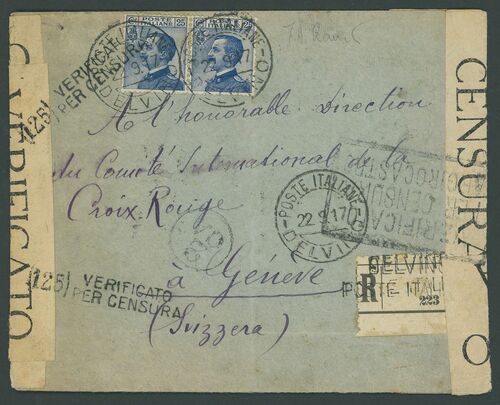 POSTE ITALIANE 25
POSTE ITALIANE 25
POSTE ITALIANE
22.9.17
DELVINO
(125) VERIFICATO
PER CENSURA
A l'honorable Direction
du Comité International de la
Croix-Rouge
à Genève
(Svizzera)
POSTE ITALIANE
22.9.17
DELVINO
VERIFICATO
PER CENSURA
(125) VERIFICATO
PER CENSURA
DELVINO
POSTE ITALI
R
223
VERIFICATO
CENSURA